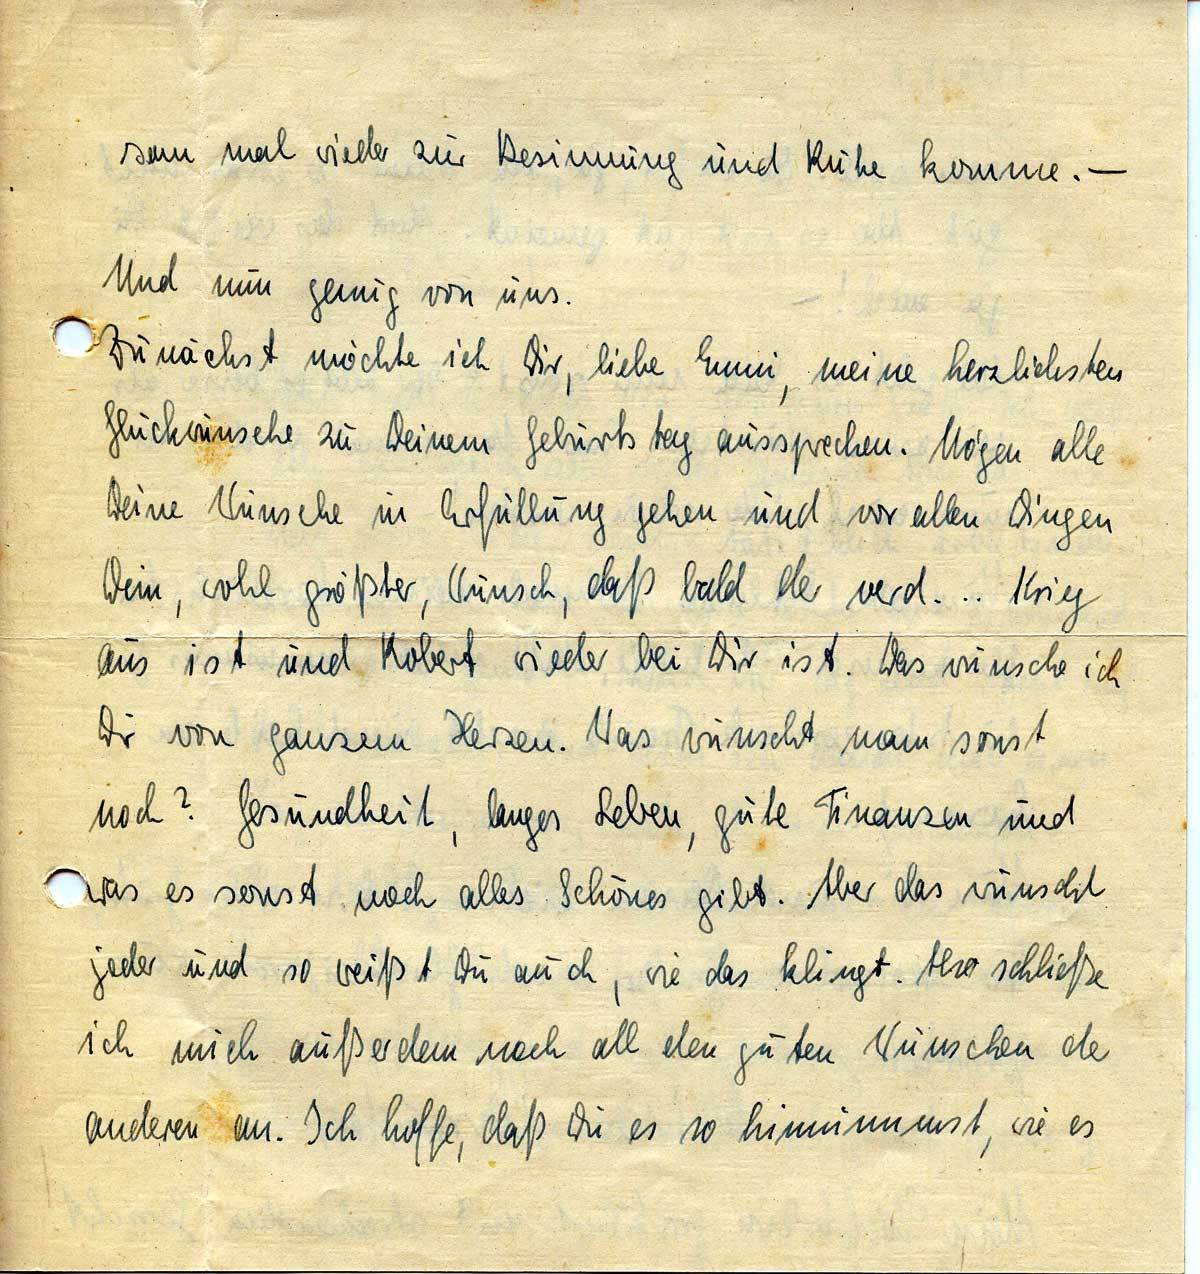 sam mal wieder zur Besinnung und Ruhe komme. —
Und nun genug von uns.
Zunächst möchte ich Dir, liebe Emmi, meine herzlichsten
Glückwünsche zu Deinem Geburtstag aussprechen. Mögen alle
Deine Wünsche in Erfüllung gehen und vor allen Dingen
Dein, wohl größter, Wunsch, daß bald der verd. .. Krieg
aus ist und Robert wieder bei Dir ist. Das wünsche ich
Dir von ganzem Herzen. Was wünscht man sonst
noch? Gesundheit, langes Leben, gute Finanzen und
was es sonst noch alles Schönes gibt. Aber das wünscht
jeder und so weißt Du auch, wie das klingt. Also schließe
ich mich außerdem noch all den guten Wünschen de
anderen an. Ich hoffe, daß Du es so hinnimmst, wie es